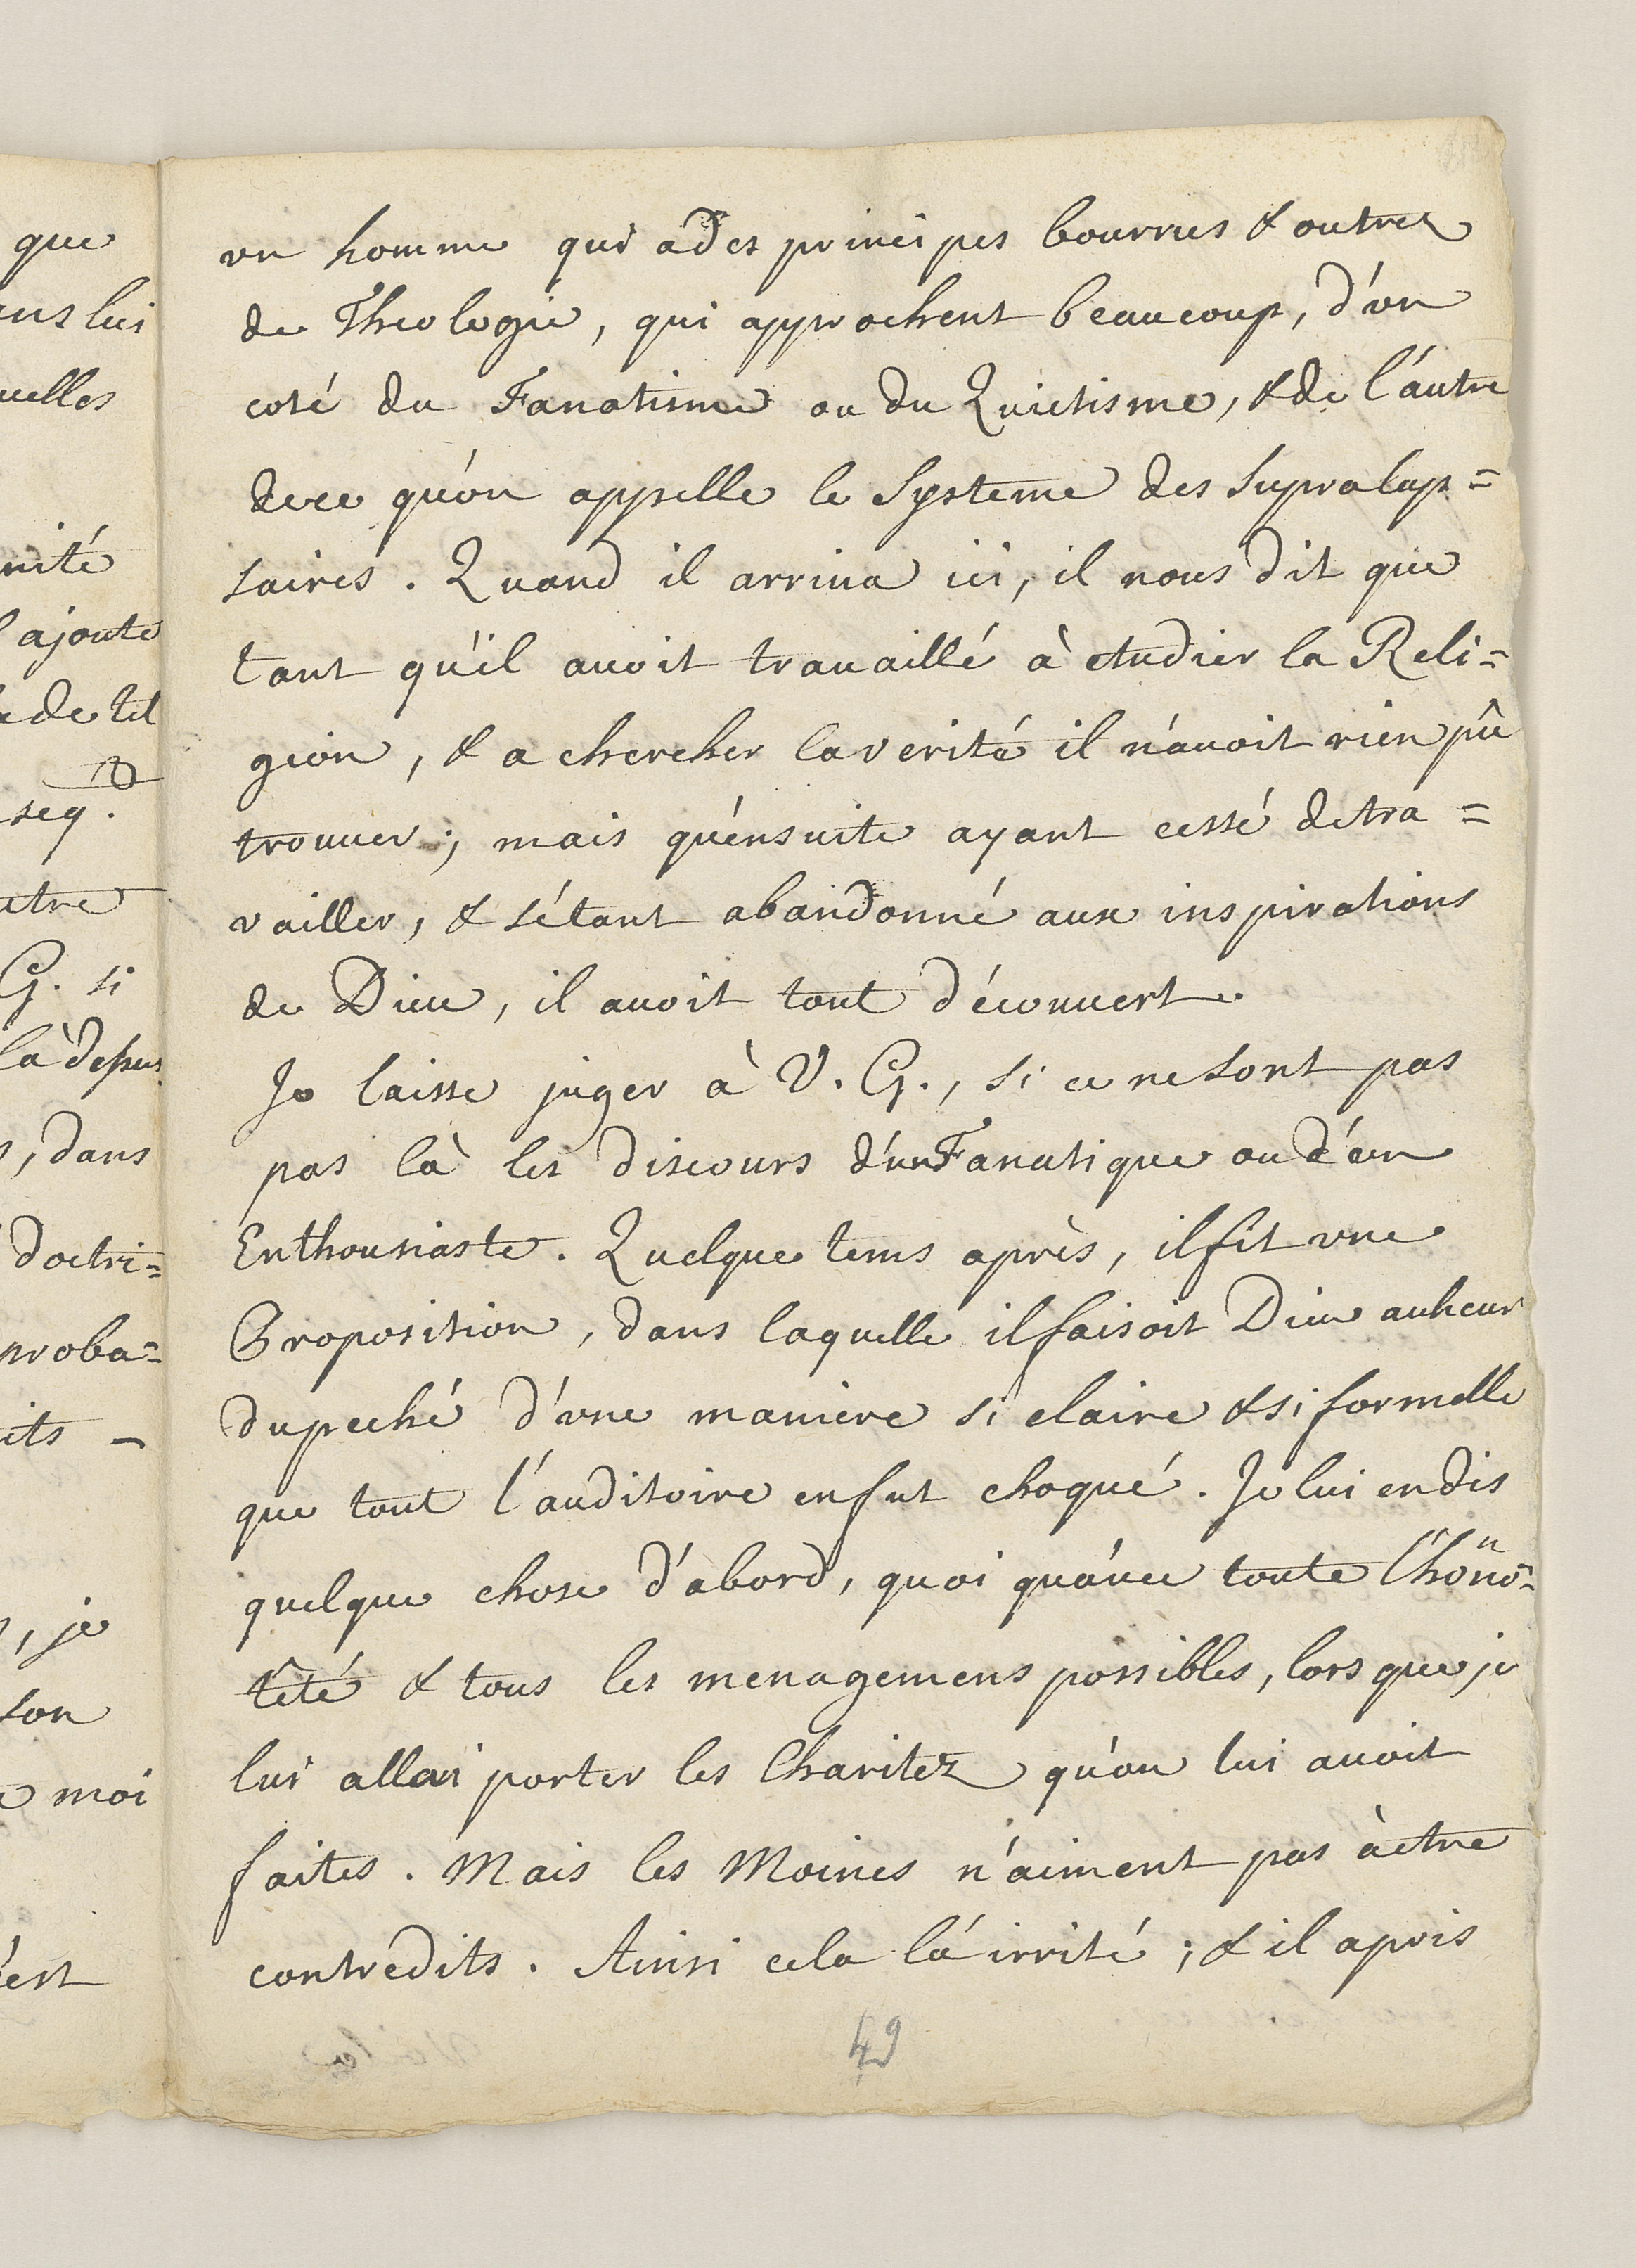 que
ens lui
uelles
nité
l ajoute
de tel
seq.
utre
G. si
là dessus
s, dans
doctri=
proba=
its -
, je
son
moi
est
vn homme qui a des principes bourrus & outrez
de Theologie, qui approchent beaucoup, d'vn
coté du Fanatisme ou du Quietisme, & de l'autre
de ce qu'on appelle le Systeme des Supralap=
saires. Quand il arriua ici, il nous dit que
tant qu'il auoit trauaillé à etudier la Reli=
gion, & a chercher la verité il n'auoit rien pû
trouuer; mais qu'ensuite ayant cessé de tra=
vailler, & s'étant abandonné aux inspirations
de Dieu, il auoit tout découuert.
Je laisse juger à V. G., si ce ne sont pas
pas là les discours d'un Fanatique ou d'un
Enthousiaste. Quelque tems après, il fit vne
Proposition, dans laquelle il faisoit Dieu autheur
du peché d'vne maniere si claire & si formelle
que tout l'auditoire en fut choqué. Je lui en dis
quelque chose d'abord, quoi qu'auec toute l'honnê=
têté & tous les menagemens possibles, lors que je
lui allai porter les Charitez qu'on lui auoit
faites. Mais les Moines n'aiment pas à etre
contredits. Ainsi cela l'a irrité; & il a pris
49